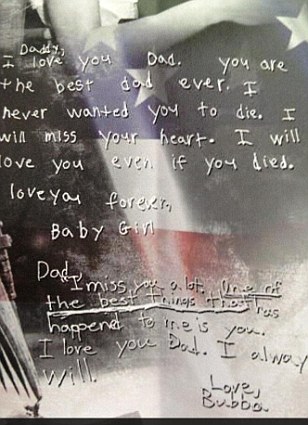 Daddy,
I love you Dad. you are
the best dad ever. I
never wanted you to die. I
will miss your heart. I will
love you even if you died.
love you forever,
Baby Girl
Dad,
I miss you a lot. One of
the best things that has
happend to me is you.
I love you Dad. I alway
will.
Love,
Bubba